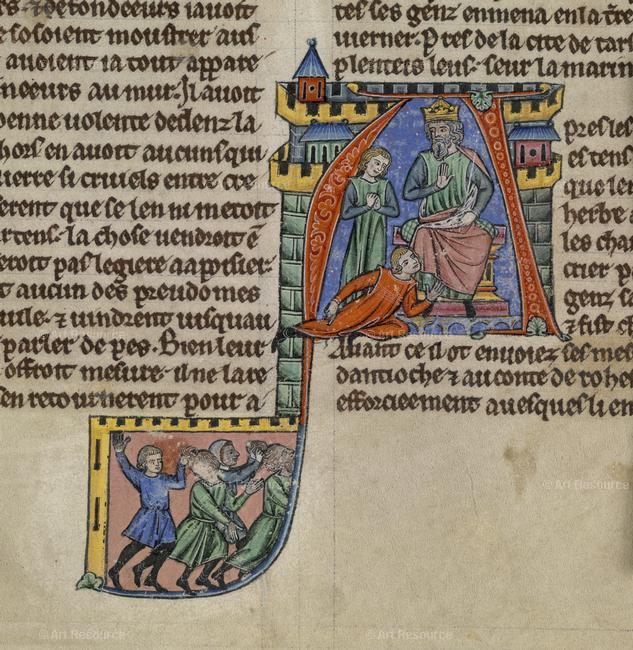 soient moustrer aus
auoient ia tout appare
neeurs au mur. Il auoit
hors en auoit aucuns qui
uerre si cruiels entre cre
serent que se len ni metoit
rtens. la chose uendroit
t aucun des preudomes
uille. ⁊ uindrent iusquau
parler de pes. Bien leur
offroit mesure. il ne la re
sen retournerent pour a
tes ses genz en mena en la t̄re
uerner. Pres de la cite de tar
plenteis leus. seur la marin
A
pres les
es tens
que le
herbe
les cha
crier p
genz s
⁊ fist c
Auant ce il ot enuoiez ses mes
dantioche ⁊ au conte de rohe
efforcieement auesques li en
© Art Resource
© Art Resource
© Art Resource
© Art Resource